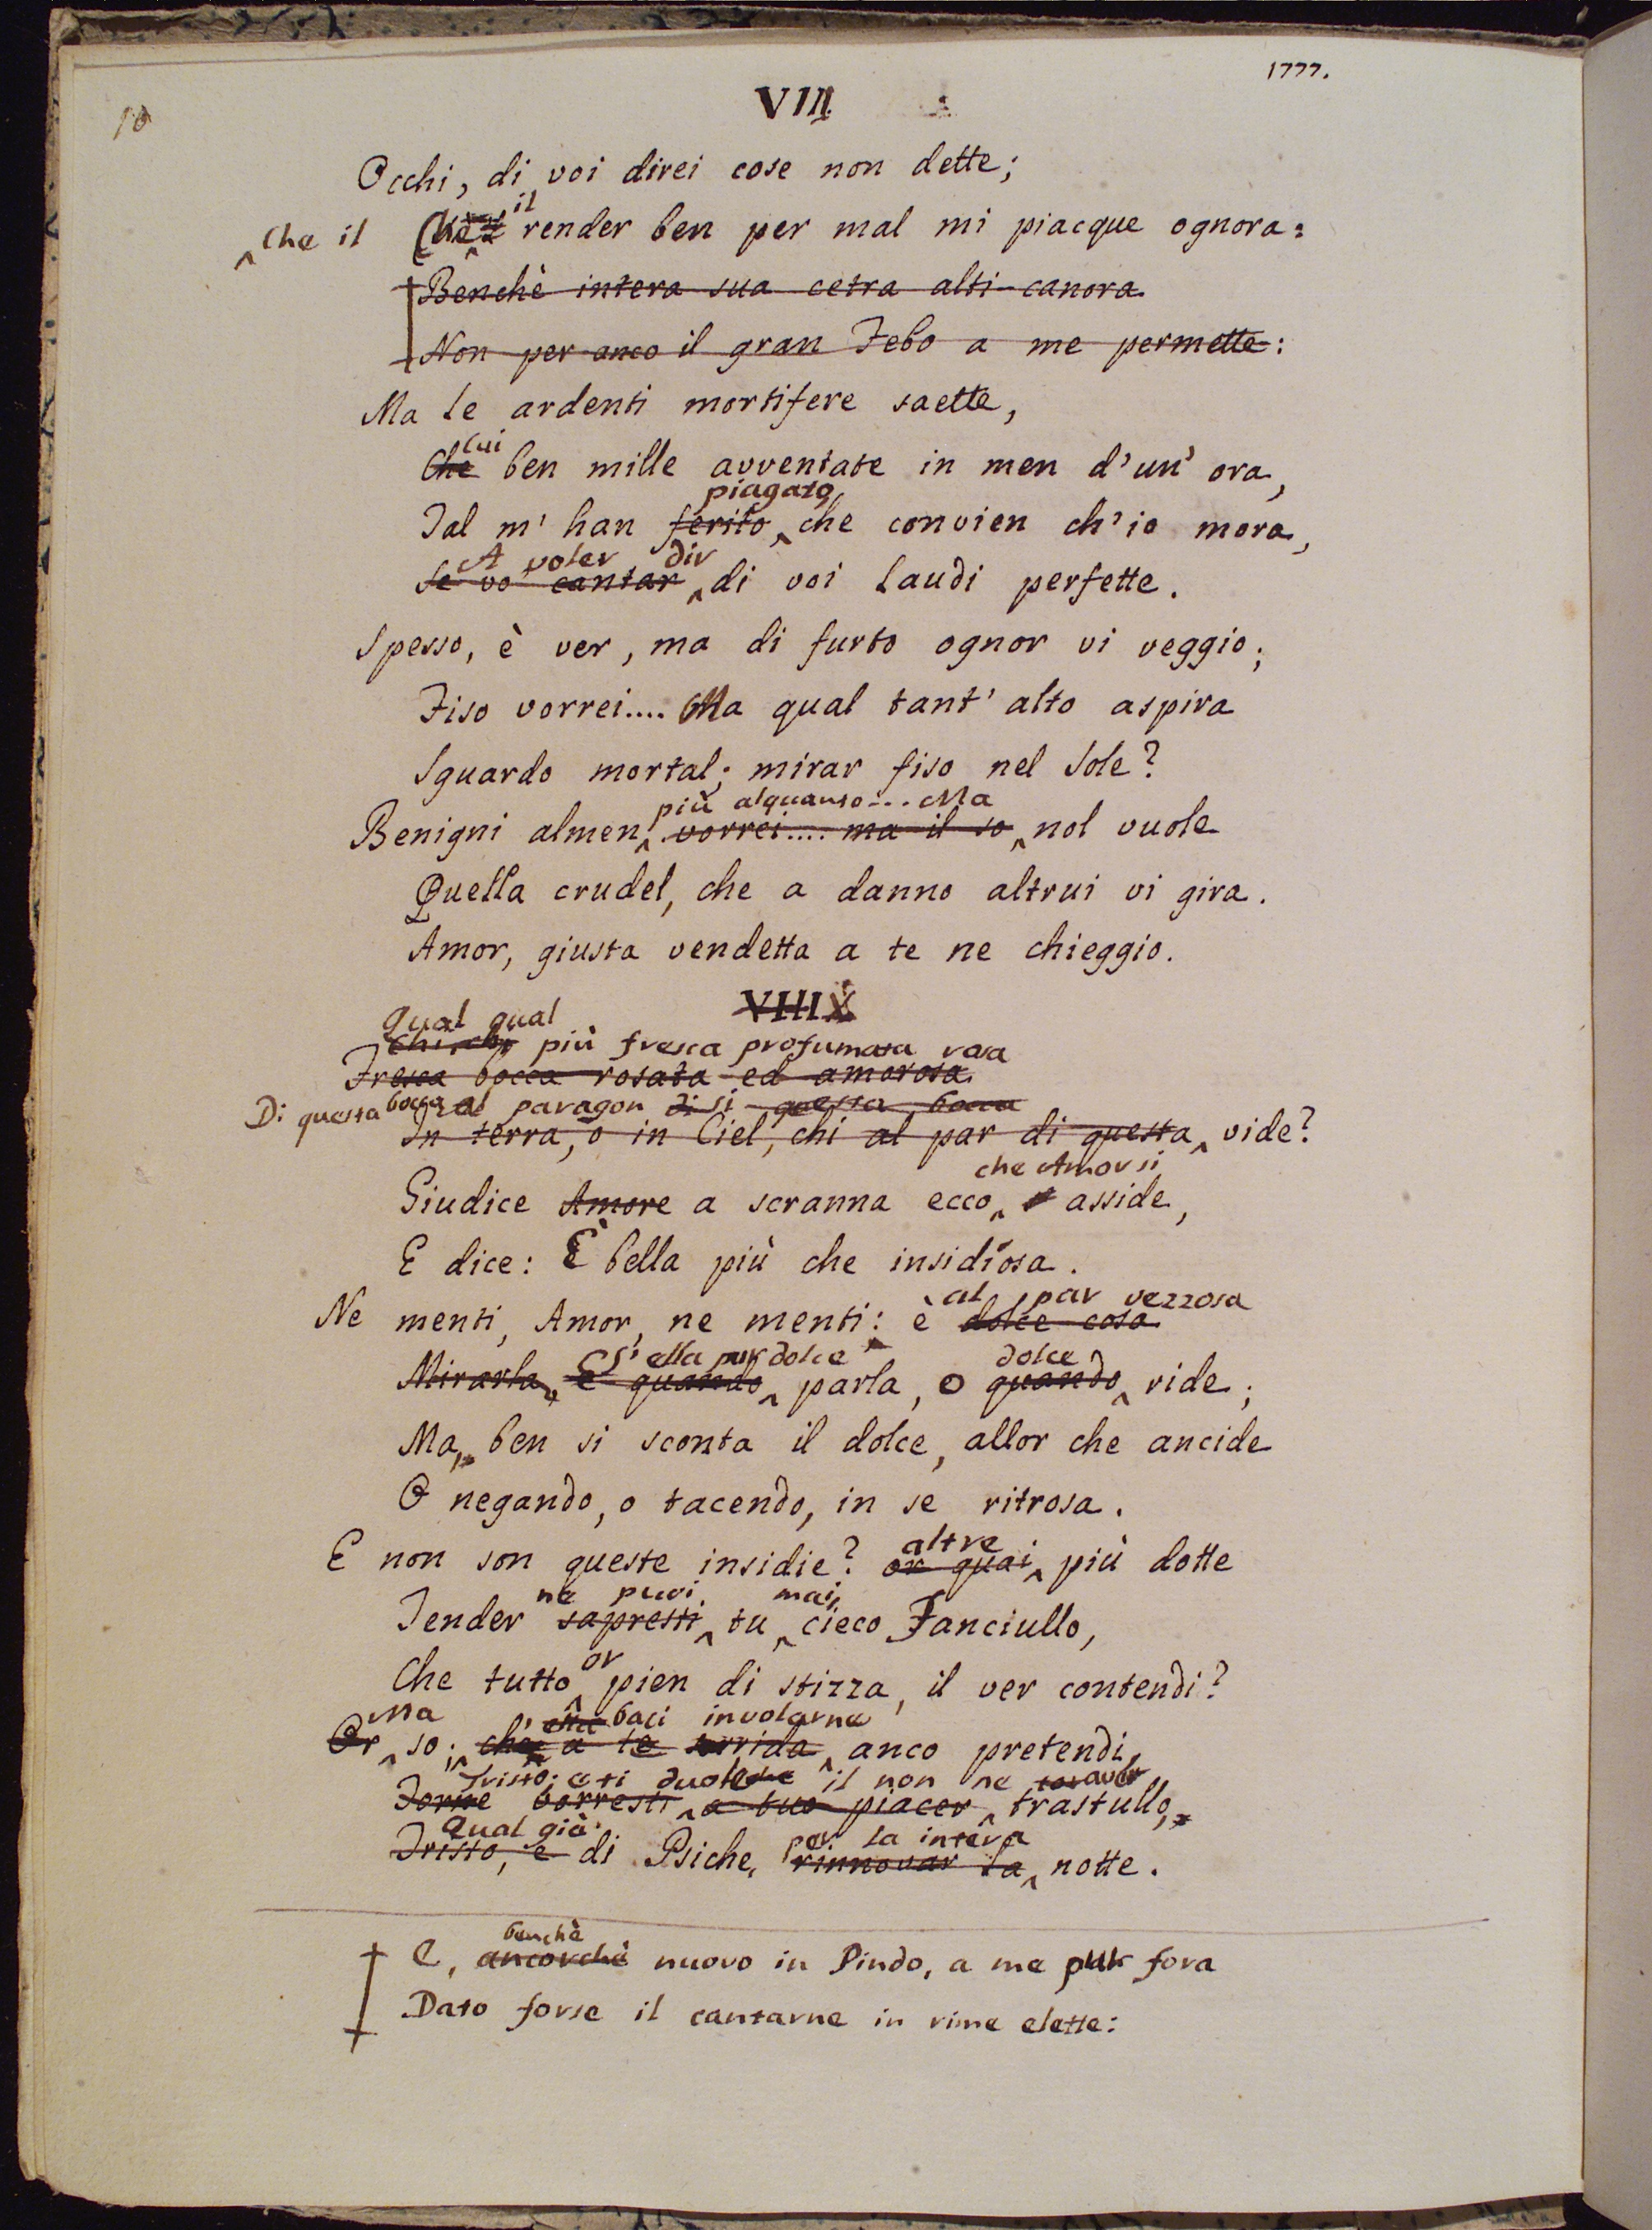 1777.
10
VIII.
Occhi, di voi direi cose non dette;
il
Che il render ben per mal mi piacque ognora:
Benchè intera sua cetra alti-canora
Non per anco il gran Febo a me permette:
Ma le ardenti mortifere saette,
Cui
Che ben mille avventate in men d'un' ora,
piagato,
Tal m' han ferito, che convien ch'io mora,
A voler dir
Se vo' cantar di voi laudi perfette.
Spesso, è ver, ma di furto ognor vi veggio;
Fiso vorrei.... Ma qual tant' alto aspira
Sguardo mortal; mirar fiso nel Sole?
più alquanto... Ma
Benigni almen vorrei.... ma il so, nol vuole
Quella crudel, che a danno altrui vi gira.
Amor, giusta vendetta a te ne chieggio.
VIIIX
Qual qual
più fresca profumata rosa
Fresca bocca rosata ed amorosa
Di questa bocca al paragon si questa bocca
In terra, o in Ciel, chi al par di questa vide?
che Amor si
Giudice Amore a scranna ecco, asside,
E dice: È bella più che insidïosa.
al par vezzosa
Ne menti, Amor, ne menti: è dolce cosa
S' ella pur dolce dolce
Mirarla, e quando parla, o quando ride;
Ma, ben si sconta il dolce, allor che ancide
O negando, o tacendo, in se ritrosa.
altre
E non son queste insidie? or quai più dotte
ne puoi mai,
Tender sapresti tu cieco Fanciullo,
or
Che tutto pien di stizza, il ver contendi?
Ma baci involarne
Or so; che a te sorrida, anco pretendi,
Tristo; e ti duole il non ne aver
Forne vorresti a tuo piacer trastullo,
Qual già per la intera
Tristo, e di Psiche, rinnovar la notte.
benchè
E, ancorchè nuovo in Pindo, a me pur fora
Dato forse il cantarne in rime elette: